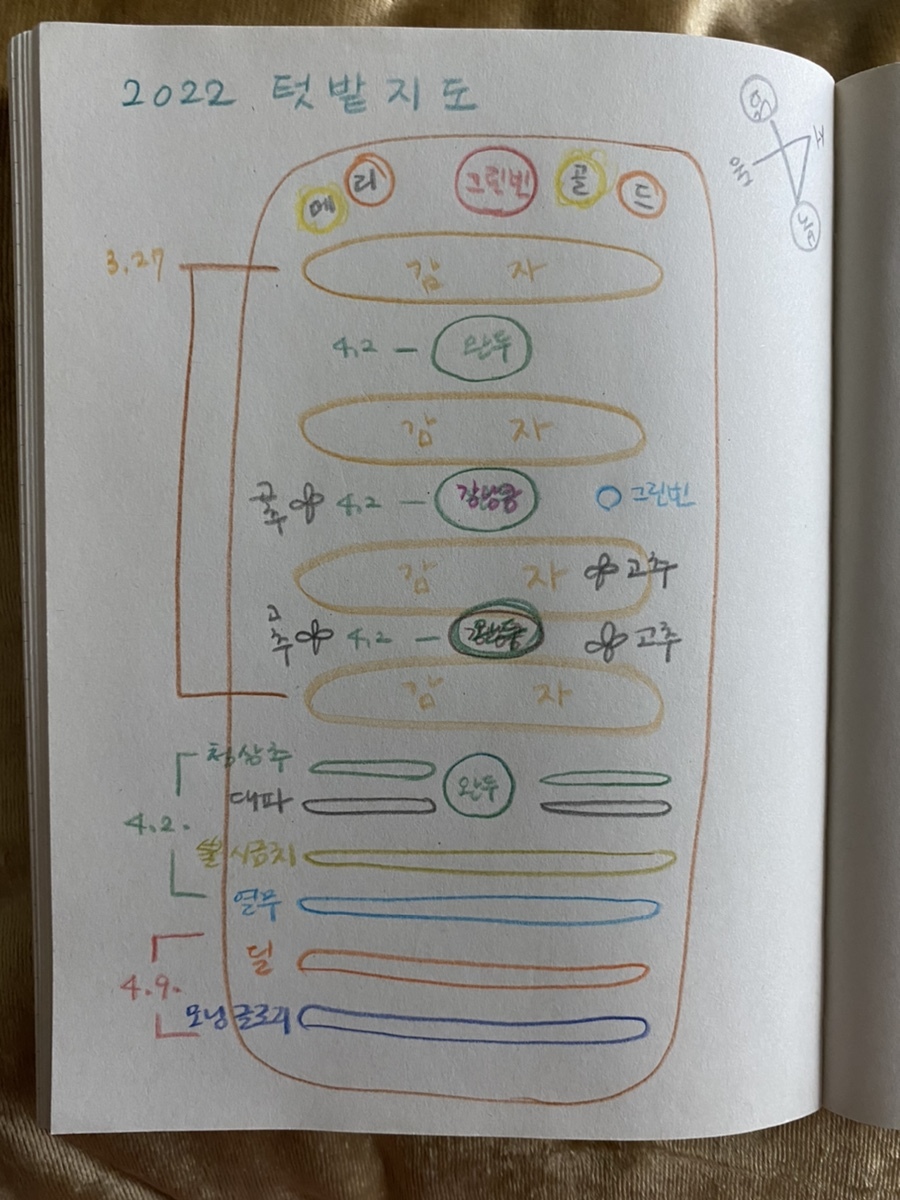 2022 텃밭지도
메 리 그린빈 골 드
3.27
감 자
4.2 — 완두
감 자
고추 4.2 — 강낭콩 그린빈
감 자 고추
고추 4.2 — 고추
감 자
청상추
완두
대파
4.2.
시금치
열무
딜
4.9.
모닝글로리